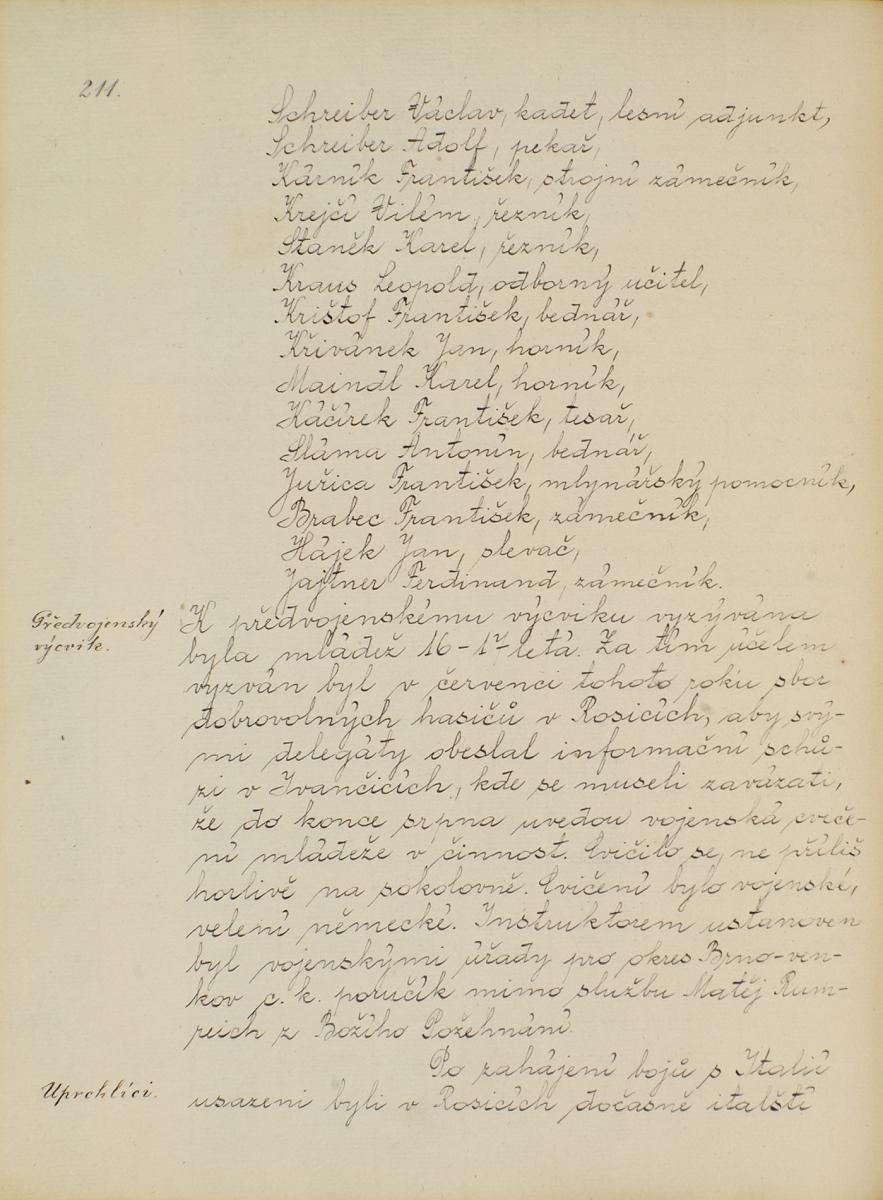 211.
Schreiber Václav, kadet, lesní adjunkt,
Schreiber Adolf, pekař,
Kárník František, strojní zámečník,
Krejčí Vilém, řezník,
Staněk Karel, řezník,
Kraus Leopold, odborný učitel,
Krištof František, bednář,
Křivánek Jan, horník,
Maindl Karel, horník,
Káčírek František, tesař,
Sláma Antonín, bednář,
Juřica František, mlynářský pomocník,
Brabec František, zámečník,
Hájek Jan, slevač,
Jajtner Ferdinand, zámečník.
Předvojenský
výcvik.
K předvojenskému výcviku vyzývána
byla mládež 16-17 letá. Za tím účelem
vyzván byl v červenci tohoto roku sbor
dobrovolných hasičů v Rosicích, aby svý-
mi delegáty obeslal informační schů-
zi v Ivančicích, kde se museli zavázati,
že do konce srpna uvedou vojenská cviče-
ní mládeže v činnost. Cvičilo se, ne příliš
horlivě na sokolovně. Cvičení bylo vojenské,
velení německé. Instruktorem ustanoven
byl vojenskými úřady pro okres Brno-ven-
kov c. k. poručík mimo službu Matěj Rum-
reich z Božího Požehnání.
Uprchlíci.
Po zahájení bojů s Italií
usazeni byli v Rosicích dočasně italští